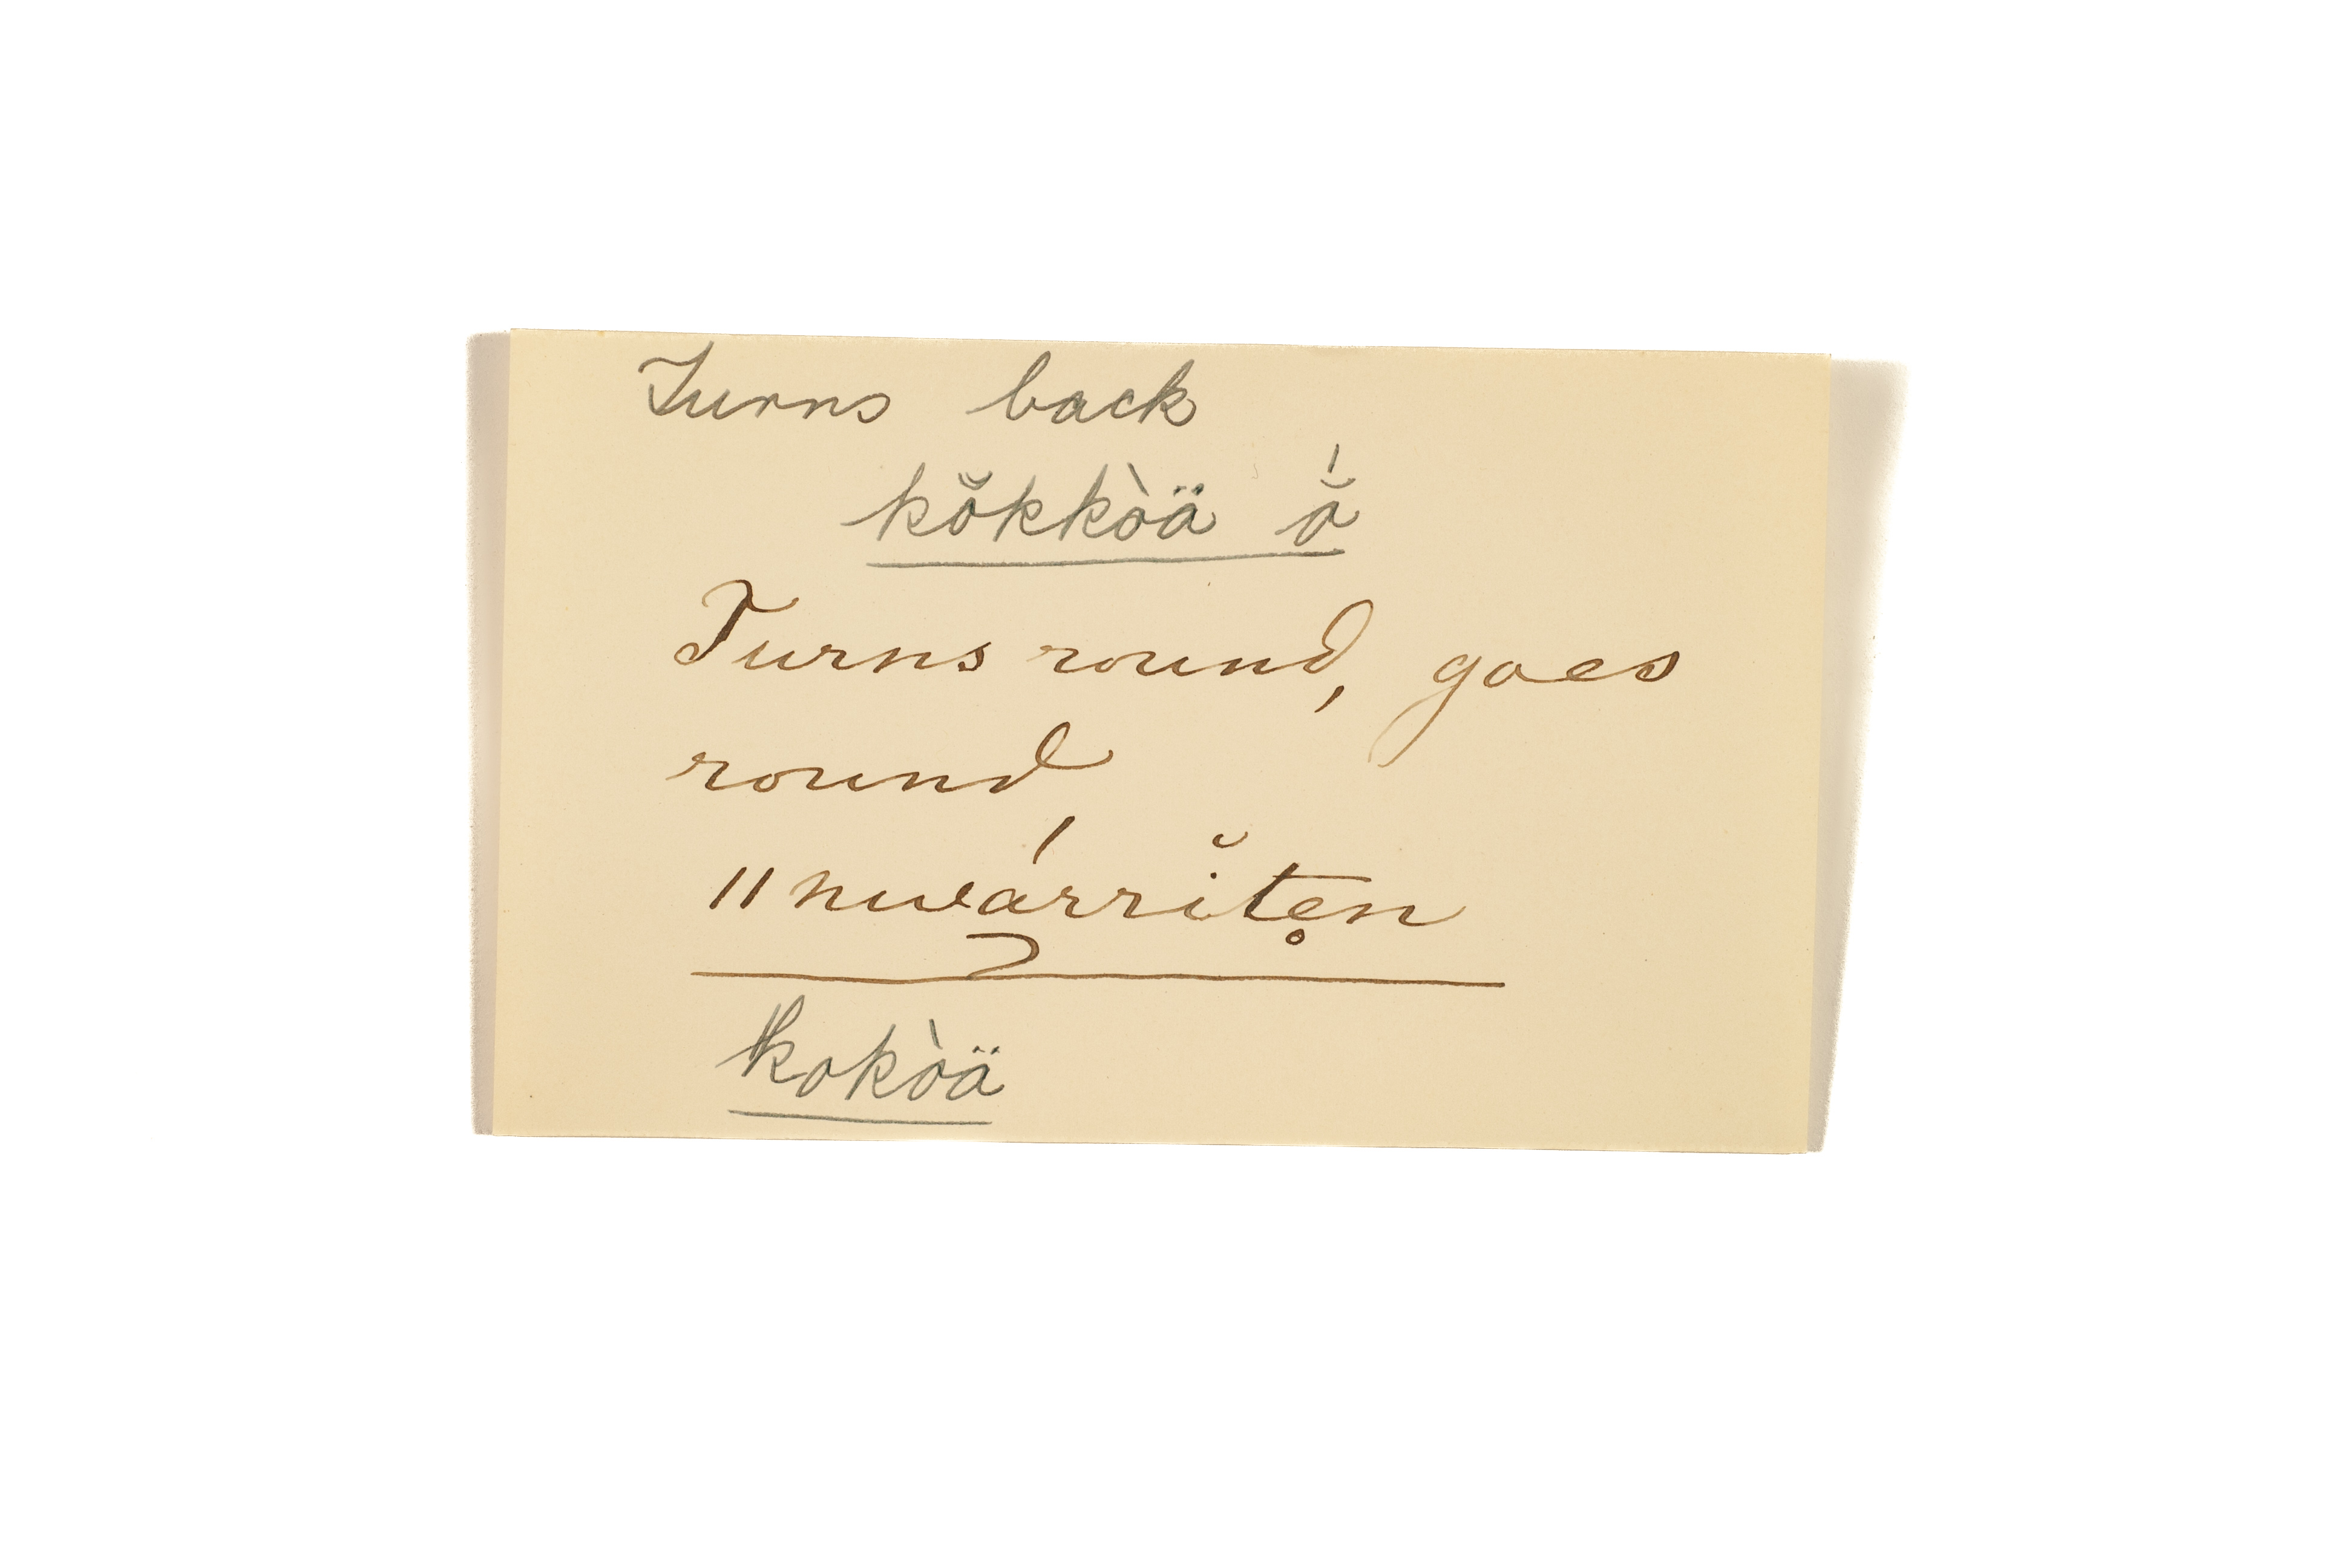 Turns back
kŏkkòä ŏ́
Turns round, goes
round
ǁnwárrĭte̥n
kokòä